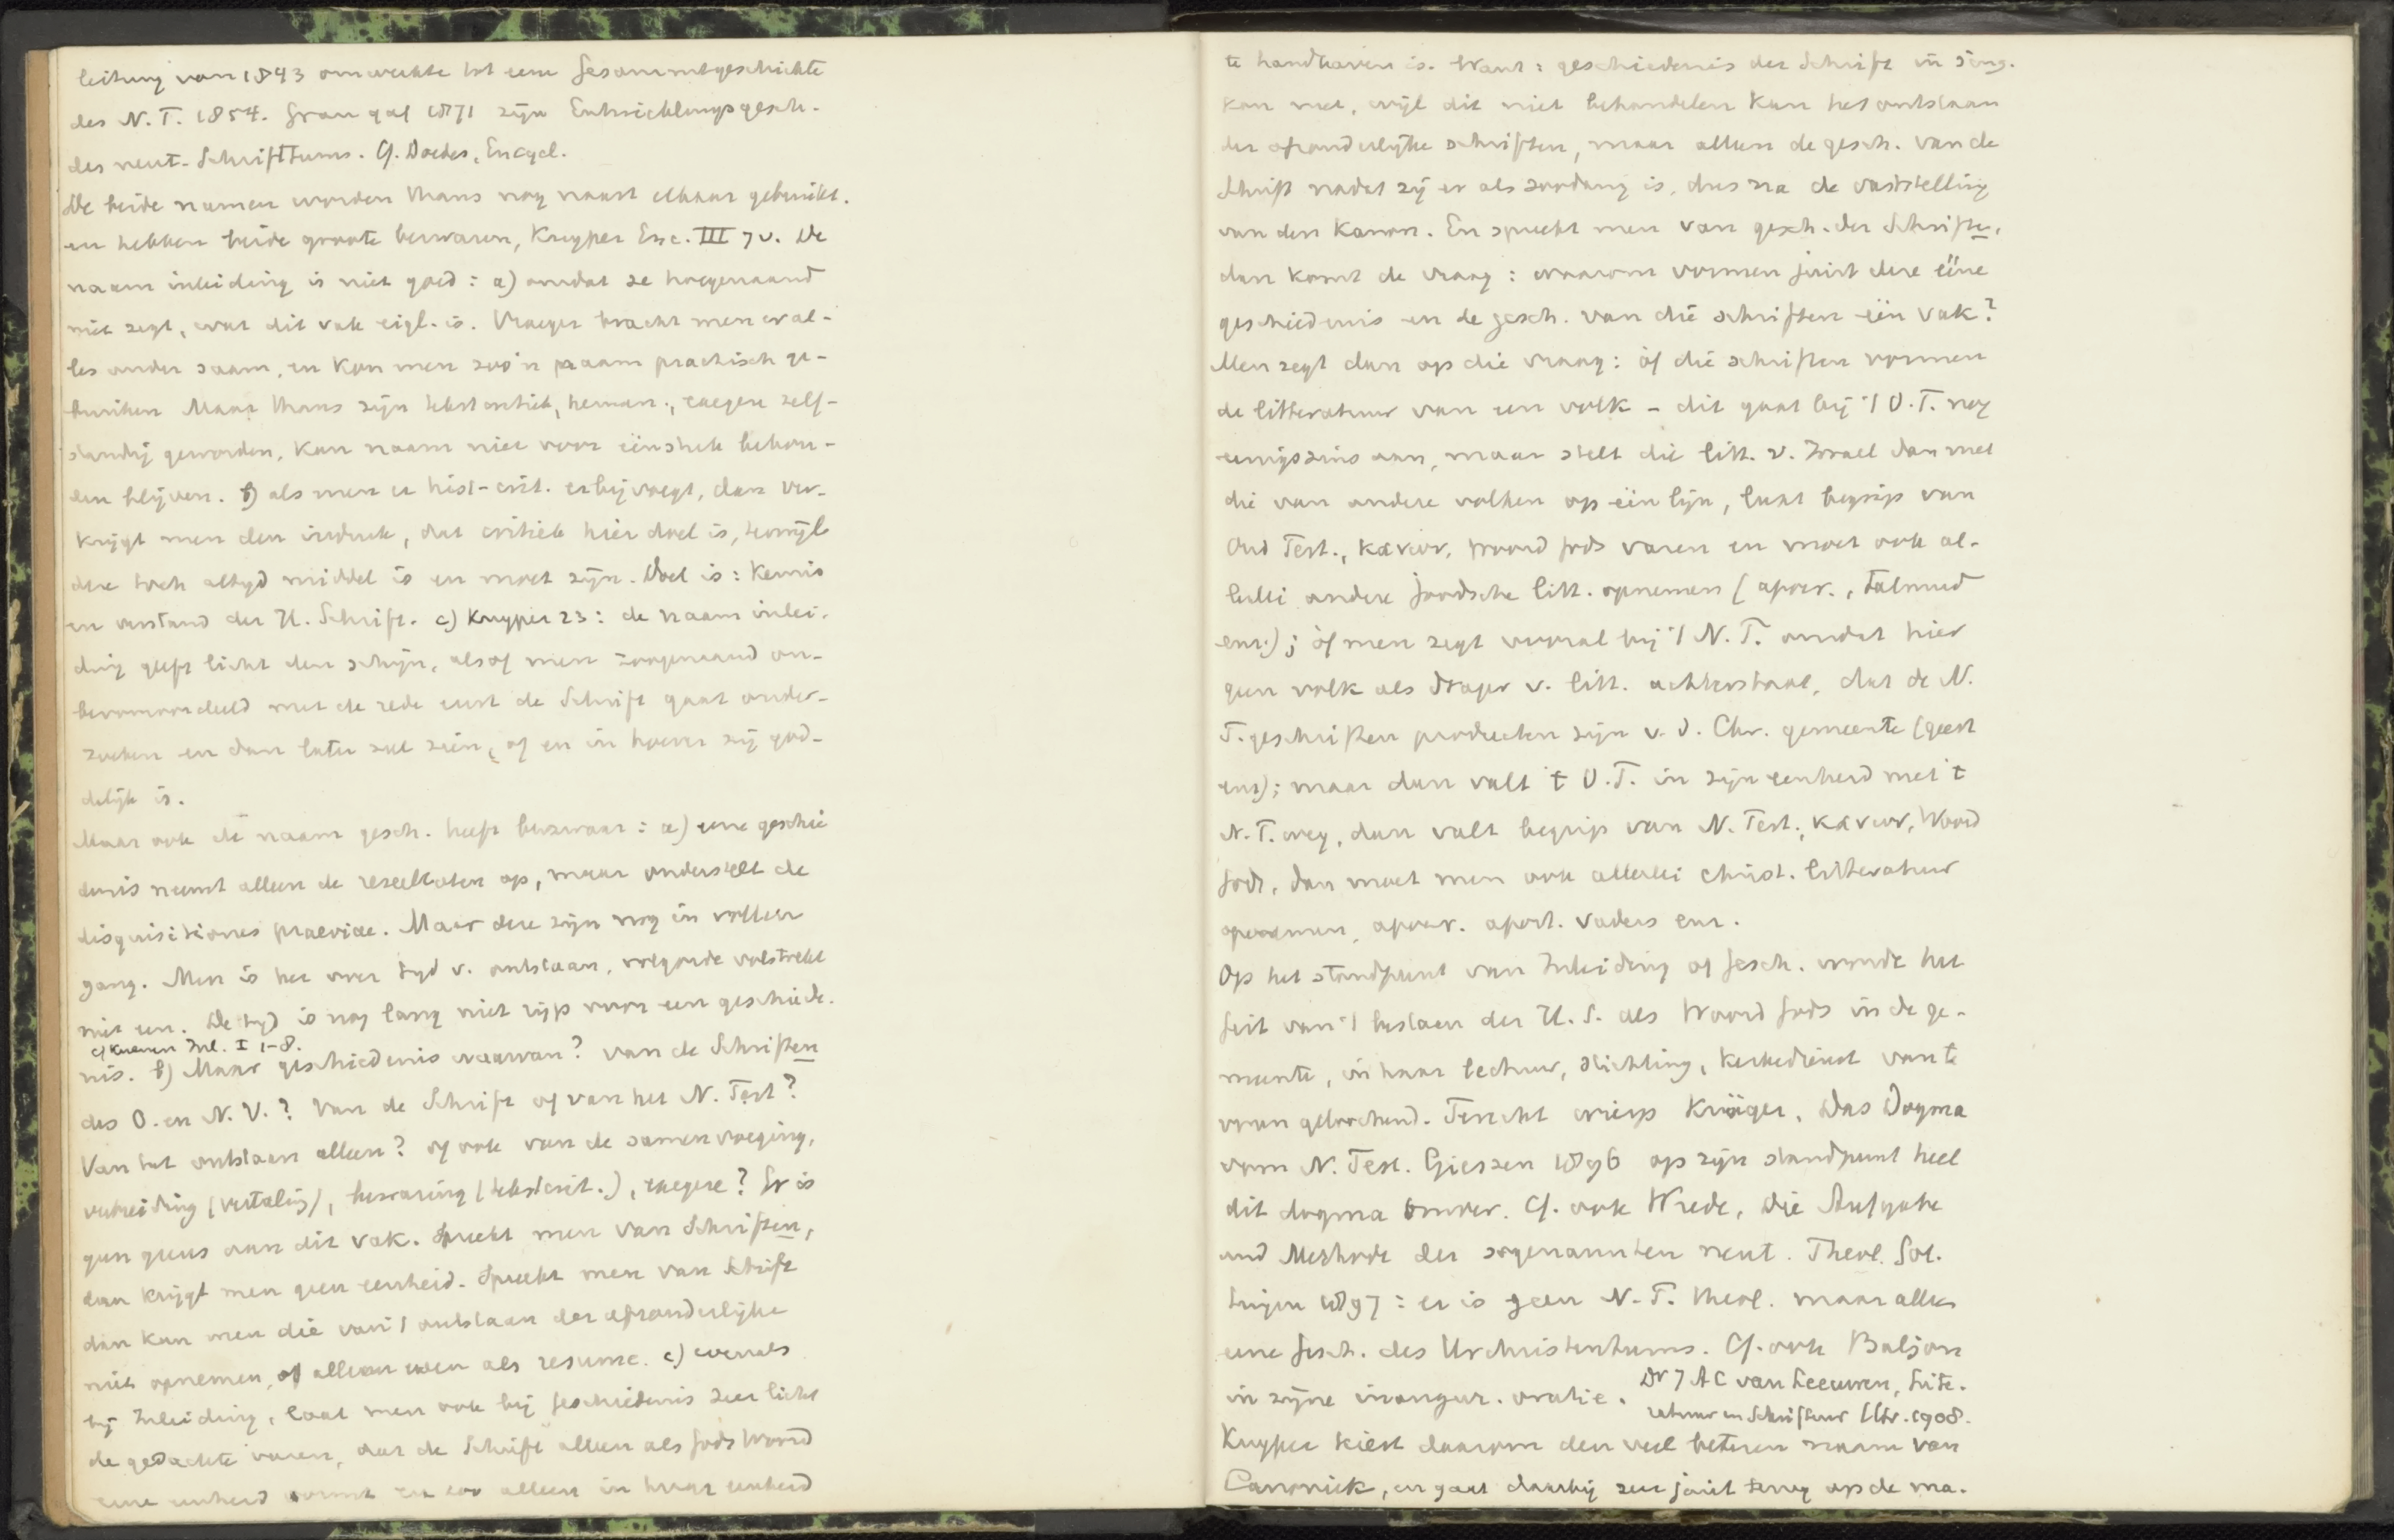 leitung van 1843 omwerkte tot eene Gesammtgeschichte
des N.T. 1854. Grau gaf 1871 zijn Entwicklungsgesch.
des neut. Schrifttums. Cf. Doedes, Encycl.
De beide namen worden thans nog naast elkaar gebruikt.
en hebben beide groote bezwaren, Kuyper Enc. III 7v. De
naam inleiding is niet goed: a) omdat ze hoegenaamd
niet zegt, wat dit vak eigl. is. Vroeger bracht men er al-
les onder saam, en kon men zoo'n naam practisch ge-
bruiken Maar thans zijn tekstcritiek, hermen., exegese zelf-
standig geworden, kan naam niet voor één stuk behou-
den blijven. b) als men er hist-crit. erbij voegt, dan ver-
krijgt men den indruk, dat critiek hier doel is, terwijl
deze toch altijd middel is en moet zijn. Doel is: kennis
en verstand der H. Schrift. c) Kuyper 23: de naam inlei-
ding geeft licht den schijn, alsof men zoogenaamd on-
bevooroordeeld met de rede eerst de Schrift gaat onder-
zoeken en dan later zal zien, of en in hoever zij god-
delijk is.
Maar ook de naam gesch. heeft bezwaar: a) eene geschie
denis neemt alleen de resultaten op, maar onderstelt de
disquisitiones praeviae. Maar deze zijn nog in vollen
gang. Men is het over tijd v. ontstaan, volgorde volstrekt
niet een. De tijd is nog lang niet rijp voor een geschiede-
cf Kuenen Inl. I 1-8.
nis. b) Maar geschiedenis waarvan? van de Schriften
des O. en N. V.? Van de Schrift of van het N. Test?
Van het ontstaan alleen? of ook van de samenvoeging,
verbreiding (vertaling), bewaring (tekstcrit.), exegese? Er is
geen grens aan dit vak. Spreekt men van Schriften,
dan krijgt men geen eenheid. Spreekt men van Schrift
dan kan men die van 't ontstaan der afzonderlijke
niet opnemen, of alleen even als resumé. c) evenals
bij Inleiding, laat men ook bij geschiedenis zeer licht
de gedachte varen, dat de Schrift alleen als Gods Woord
eene eenheid vormt en zoo alleen in haar eenheid
te handhaven is. Want: geschiedenis der Schrift in sing.
kan niet, wijl dit niet behandelen kan het ontstaan
der afzonderlijke schriften, maar alleen de gesch. van de
Schrift nadat zij er als zoodanig is, dus na de vaststelling
van den Kanon. En spreekt men van gesch. der Schriften,
dan komt de vraag: waarom vormen juist deze ééne
geschiedenis en de gesch. van die schriften één vak?
Men zegt dan op die vraag: òf die schriften vormen
de litteratuur van een volk - dit gaat bij 't O.T. nog
eenigszins aan, maar stelt die litt. v. Israel dan met
die van andere volken op één lijn, laat begrip van
Oud Test., κανων, Woord Gods varen en moet ook al-
lerlei andere Joodsche litt. opnemen (apocr., Talmud
enz.); òf men zegt vooral bij 't N.T. omdat hier
geen volk als drager v. litt. achterstaat, dat de N.
T. geschriften producten zijn v. d. Chr. gemeente (geest
enz); maar dan valt 't O.T. in zijn eenheid met 't
N.T. weg, dan valt begrip van N. Test., κανων, Woord
Gods, dan moet men ook allerlei christ. litteratuur
opnemen, apocr. apost. vaders enz.
Op het standpunt van Inleiding of Gesch. wordt het
feit van 't bestaan der H.S. als Woord Gods in de ge-
meente, in haar lectuur, stichting, kerkedienst van te
voren gelochend. Terecht wierp Krüger, Das Dogma
vom N. Test. Gieszen 1896 op zijn standpunt heel
dit dogma omver. Cf. ook Wrede, Die Aufgabe
und Methode der sogenannten neut. Theol. Göt.
tingen 1897: er is geen N.T. theol. maar alleen
eene Gesch. des Urchristentums. Cf. ook Baljon
in zijne inaugur. oratie. Dr J A C van Leeuwen, Lite-
ratuur en Schriftuur Utr. 1908.
Kuyper kiest daarom den veel beteren naam van
Canoniek, en gaat daarbij zeer juist terug op de ma-